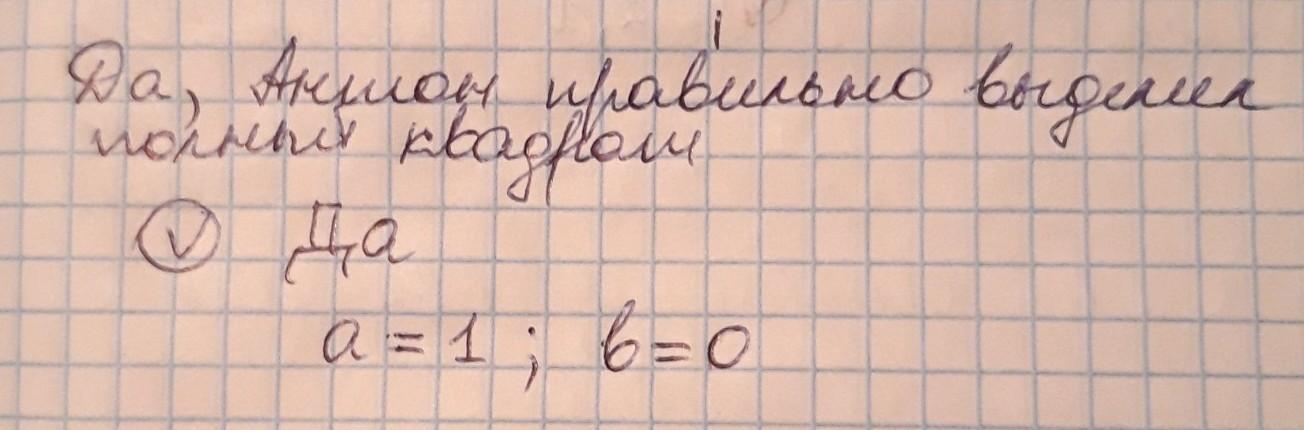 Да, Антон правильно выделил
полный квадрат
V Да
a = 1 ; b = 0